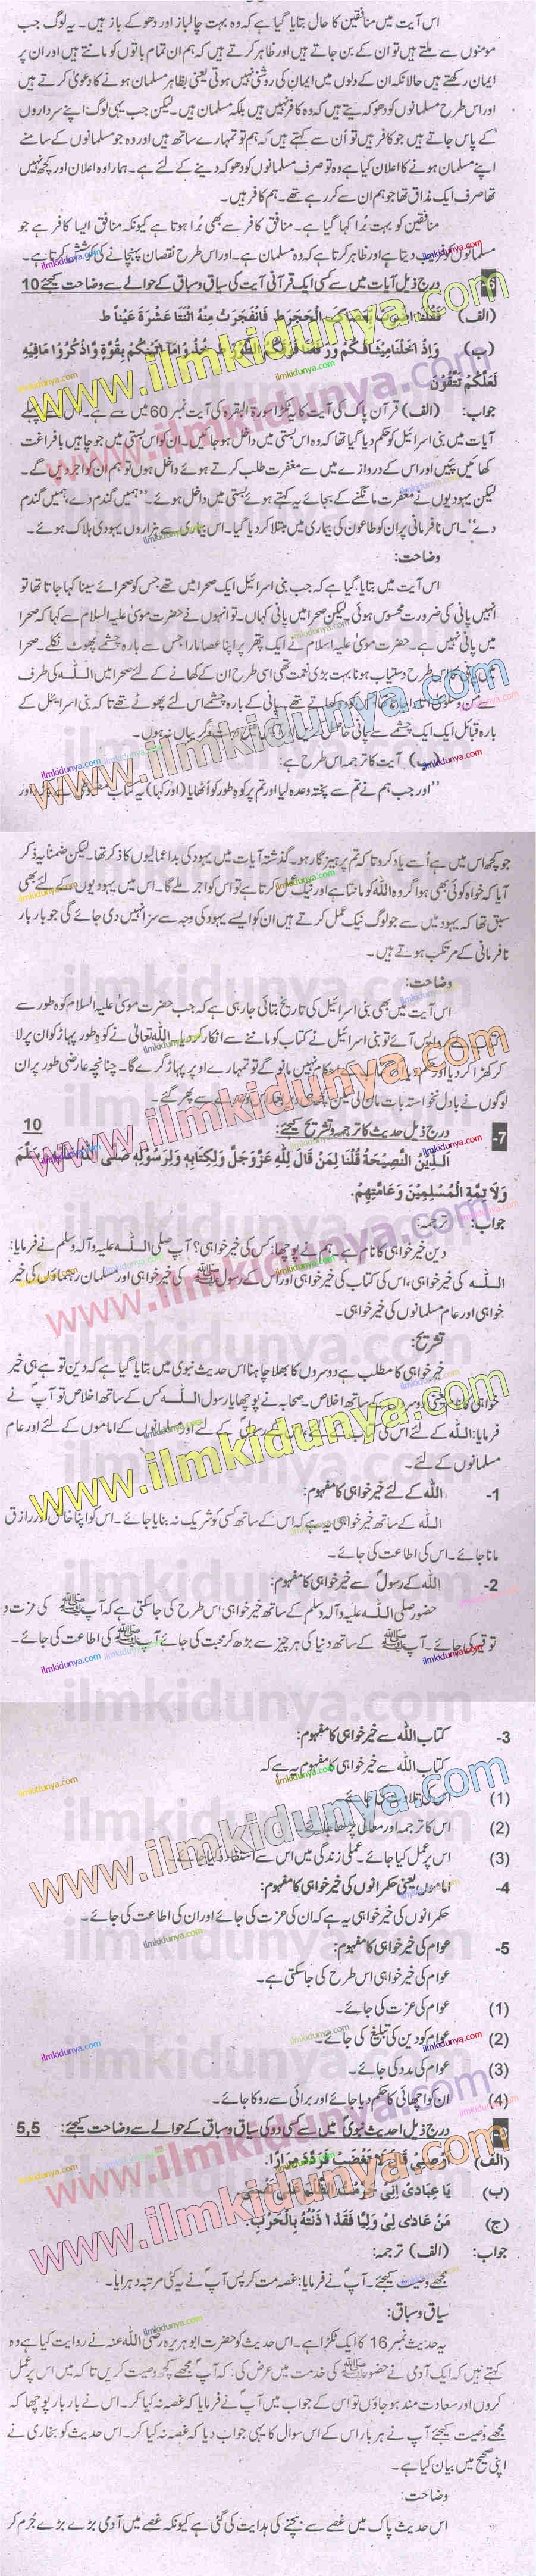 اس آیت میں منافقین کا حال بتایا گیا ہے کہ وہ بہت چالباز اور دھوکے باز ہیں۔ یہ لوگ جب
مومنوں سے ملتے ہیں تو ان کے بن جاتے ہیں اور ظاہر کرتے ہیں کہ ہم ان تمام باتوں کو مانتے ہیں اور ان پر
ایمان رکھتے ہیں حالانکہ ان کے دلوں میں ایمان کی روشنی نہیں ہوتی یعنی بظاہر مسلمان ہونے کا دعویٰ کرتے ہیں
اور اس طرح مسلمانوں کو دھوکہ دیتے ہیں کہ وہ کافر نہیں ہیں بلکہ مسلمان ہیں۔ لیکن جب یہی لوگ اپنے سرداروں
کے پاس جاتے ہیں جو کافر ہیں تو اُن سے کہتے ہیں کہ ہم تو تمہارے ساتھ ہیں اور وہ جو مسلمانوں کے سامنے
اپنے مسلمان ہونے کا اعلان کیا ہے وہ تو صرف مسلمانوں کو دھوکہ دینے کے لئے ہے۔ ہمارا وہ اعلان اور کچھ نہیں
تھا صرف ایک مذاق تھا جو ہم ان سے کر رہے تھے۔ ہم کافر ہیں۔
منافقین کو بہت بُرا کہا گیا ہے۔ منافق کافر سے بھی بُرا ہوتا ہے کیونکہ منافق ایسا کافر ہے جو
مسلمانوں کو فریب دیتا ہے اور ظاہر کرتا ہے کہ وہ مسلمان ہے۔ اور اس طرح نقصان پہنچانے کی کوشش کرتا ہے۔
درج ذیل آیات میں سے کسی ایک قرآنی آیت کی سیاق و سباق کے حوالے سے وضاحت کیجئے 10
(الف) فَقُلْنَا اضْرِبْ بِعَصَاكَ الْحَجَرَ ط فَانْفَجَرَتْ مِنْهُ اثْنَتَا عَشْرَةَ عَيْنًا ط
(ب) وَإِذْ أَخَذْنَا مِيثَاقَكُمْ وَرَفَعْنَا فَوْقَكُمُ الطُّورَ ط خُذُوا مَا آتَيْنٰكُمْ بِقُوَّةٍ وَّاذْكُرُوْا مَافِيْهِ
لَعَلَّكُمْ تَتَّقُوْنَ
جواب: (الف) قرآن پاک کی آیت کا یہ ٹکڑا سورۃ البقرہ کی آیت نمبر 60 میں سے ہے۔ اس سے پہلے
آیات میں بنی اسرائیل کو حکم دیا گیا تھا کہ وہ اس بستی میں داخل ہو جائیں۔ ان کو اس بستی میں جو چاہیں بافراغت
کھائیں پئیں اور اس کے دروازے میں سے مغفرت طلب کرتے ہوئے داخل ہوں تو ہم ان کو اجر دیں گے۔
لیکن یہودیوں نے مغفرت مانگنے کے بجائے یہ کہتے ہوئے بستی میں داخل ہوئے۔ "ہمیں گندم دے، ہمیں گندم
دے"۔ اس نافرمانی پر ان کو طاعون کی بیماری میں مبتلا کر دیا گیا۔ اس بیماری سے ہزاروں یہودی ہلاک ہوئے۔
وضاحت:
اس آیت میں بتایا گیا ہے کہ جب بنی اسرائیل ایک صحرا میں تھے جس کو صحرائے سینا کہا جاتا تھا تو
انہیں پانی کی ضرورت محسوس ہوئی لیکن صحرا میں پانی کہاں۔ تو انہوں نے حضرت موسیٰ علیہ السلام سے کہا کہ صحرا
میں پانی نہیں ہے۔ حضرت موسیٰ علیہ السلام نے ایک پتھر پر اپنا عصا مارا جس سے بارہ چشمے پھوٹ نکلے۔ صحرا
میں پانی کا اس طرح دستیاب ہونا بہت بڑی نعمت تھی اسی طرح ان کے کھانے کے لئے صحرا میں اللہ کی طرف
پانی کے بارہ چشمے اس لئے پھوٹے تھے تاکہ بنی اسرائیل کے
بارہ قبائل ایک ایک چشمے سے پانی حاصل کریں اور آپس میں دست و گریباں نہ ہوں۔
(ب) آیت کا ترجمہ اس طرح ہے:
"اور جب ہم نے تم سے پختہ وعدہ لیا اور تم پر کوہِ طور کو اٹھایا (اور کہا) یہ کتاب
جو کچھ اس میں ہے اُسے یاد کرو تاکہ تم پرہیزگار ہو۔ گذشتہ آیات میں یہود کی بداعمالیوں کا ذکر تھا۔ لیکن ضمناً یہ ذکر
آیا کہ خواہ کوئی بھی ہو اگر وہ اللہ کو مانتا ہے اور نیک عمل کرتا ہے تو اس کو اجر ملے گا۔ اس میں یہودیوں کے لئے بھی
سبق تھا کہ یہود میں سے جو لوگ نیک عمل کرتے ہیں ان کو ایسے یہود کی وجہ سے سزا نہیں دی جائے گی جو بار بار
نافرمانی کے مرتکب ہوتے ہیں۔
وضاحت:
اس آیت میں بھی بنی اسرائیل کی تاریخ بتائی جا رہی ہے کہ جب حضرت موسیٰ علیہ السلام کوہ طور سے
واپس آئے تو بنی اسرائیل نے کتاب کو ماننے سے انکار کر دیا۔ اللہ تعالیٰ نے کوہ طور پہاڑ کو ان پر لا
کر کھڑا کر دیا اور احکام نہیں مانو گے تو تمہارے اوپر پہاڑ گرے گا۔ چنانچہ عارضی طور پر ان
لوگوں نے بادل نخواستہ بات مان لی لیکن سے پھر گئے۔
7- درج ذیل حدیث کا ترجمہ و تشریح کیجئے: 10
اَلدِّيْنُ النَّصِيْحَةُ قُلْنَا لِمَنْ قَالَ لِلّٰهِ عَزَّوَجَلَّ وَلِكِتَابِهٖ وَلِرَسُوْلِهٖ صَلَّى اللّٰهُ عَلَيْهِ وَسَلَّمَ
وَلَا ئِمَّةِ الْمُسْلِمِيْنَ وَعَامَّتِهِمْ.
جواب: ترجمہ:
دین خیر خواہی کا نام ہے۔ ہم نے پوچھا: کس کی خیر خواہی؟ آپ صلی اللہ علیہ وآلہ وسلم نے فرمایا:
اللہ کی خیر خواہی، اس کی کتاب کی خیر خواہی اور اس کے رسول ﷺ کی خیر خواہی اور مسلمان رہنماؤں کی خیر
خواہی اور عام مسلمانوں کی خیر خواہی۔
تشریح:
خیر خواہی کا مطلب ہے دوسروں کا بھلا چاہنا اس حدیث نبوی میں بتایا گیا ہے کہ دین تو ہے ہی خیر
خواہی کا نام یعنی دوسروں کے ساتھ اخلاص۔ صحابہ نے پوچھا یا رسول اللہ کس کے ساتھ اخلاص تو آپؐ نے
فرمایا: اللہ کے لئے اس کی کتاب کے لئے، اس کے رسولؐ کے لئے اور مسلمانوں کے اماموں کے لئے اور عام
مسلمانوں کے لئے۔
1- اللہ کے لئے خیر خواہی کا مفہوم:
اللہ کے ساتھ خیر خواہی یہ ہے کہ اس کے ساتھ کسی کو شریک نہ بنایا جائے۔ اس کو اپنا خالق اور رازق
مانا جائے۔ اس کی اطاعت کی جائے۔
2- اللہ کے رسولؐ سے خیر خواہی کا مفہوم:
حضور صلی اللہ علیہ وآلہ وسلم کے ساتھ خیر خواہی اس طرح کی جا سکتی ہے کہ آپ ﷺ کی عزت و
توقیر کی جائے۔ آپ ﷺ کے ساتھ دنیا کی ہر چیز سے بڑھ کر محبت کی جائے آپ ﷺ کی اطاعت کی جائے۔
3- کتاب اللہ سے خیر خواہی کا مفہوم:
کتاب اللہ سے خیر خواہی کا مفہوم یہ ہے کہ
(1) اس کی تلاوت کی جائے۔
(2) اس کا ترجمہ اور معانی پڑھا جائے۔
(3) اس پر عمل کیا جائے۔ عملی زندگی میں اس سے استفادہ کیا جائے۔
4- اماموں یعنی حکمرانوں کی خیر خواہی کا مفہوم:
حکمرانوں کی خیر خواہی یہ ہے کہ ان کی عزت کی جائے اور ان کی اطاعت کی جائے۔
5- عوام کی خیر خواہی کا مفہوم:
عوام کی خیر خواہی اس طرح کی جا سکتی ہے۔
(1) عوام کی عزت کی جائے۔
(2) عوام کو دین کی تبلیغ کی جائے۔
(3) عوام کی مدد کی جائے۔
(4) ان کو اچھائی کا حکم دیا جائے اور برائی سے روکا جائے۔
8- درج ذیل احادیث نبویؐ میں سے کسی دو کی سیاق و سباق کے حوالے سے وضاحت کیجئے: 5,5
(الف) اَوْصِنِىْ قَالَ لَا تَغْضَبْ فَرَدَّدَ مِرَارًا.
(ب) يَا عِبَادِىْ اِنِّىْ حَرَّمْتُ الظُّلْمَ عَلٰى نَفْسِىْ.
(ج) مَنْ عَادٰى لِىْ وَلِيًّا فَقَدْ اٰذَنْتُهُ بِالْحَرْبِ.
جواب: (الف) ترجمہ:
مجھے وصیت کیجئے۔ آپؐ نے فرمایا: غصہ مت کر پس آپؐ نے یہ کئی مرتبہ دہرایا۔
سیاق و سباق:
یہ حدیث نمبر 16 کا ایک ٹکڑا ہے۔ اس حدیث کو حضرت ابوہریرہ رضی اللہ عنہ نے روایت کیا ہے وہ
کہتے ہیں کہ ایک آدمی نے حضور ﷺ کی خدمت میں عرض کی: کہ آپؐ مجھے کچھ وصیت کریں تاکہ میں اس پر عمل
کروں اور سعادت مند ہو جاؤں تو اس کے جواب میں آپؐ نے فرمایا کہ غصہ نہ کیا کر۔ اس نے بار بار پوچھا کہ
مجھے وصیت کیجئے آپ نے ہر بار اس کے اس سوال کا یہی جواب دیا کہ غصہ نہ کیا کر۔ اس حدیث کو بخاری نے
اپنی صحیح میں بیان کیا ہے۔
وضاحت:
اس حدیث پاک میں غصے سے بچنے کی ہدایت کی گئی ہے کیونکہ غصے میں آدمی بڑے بڑے جُرم کر
www.ilmkidunya.com